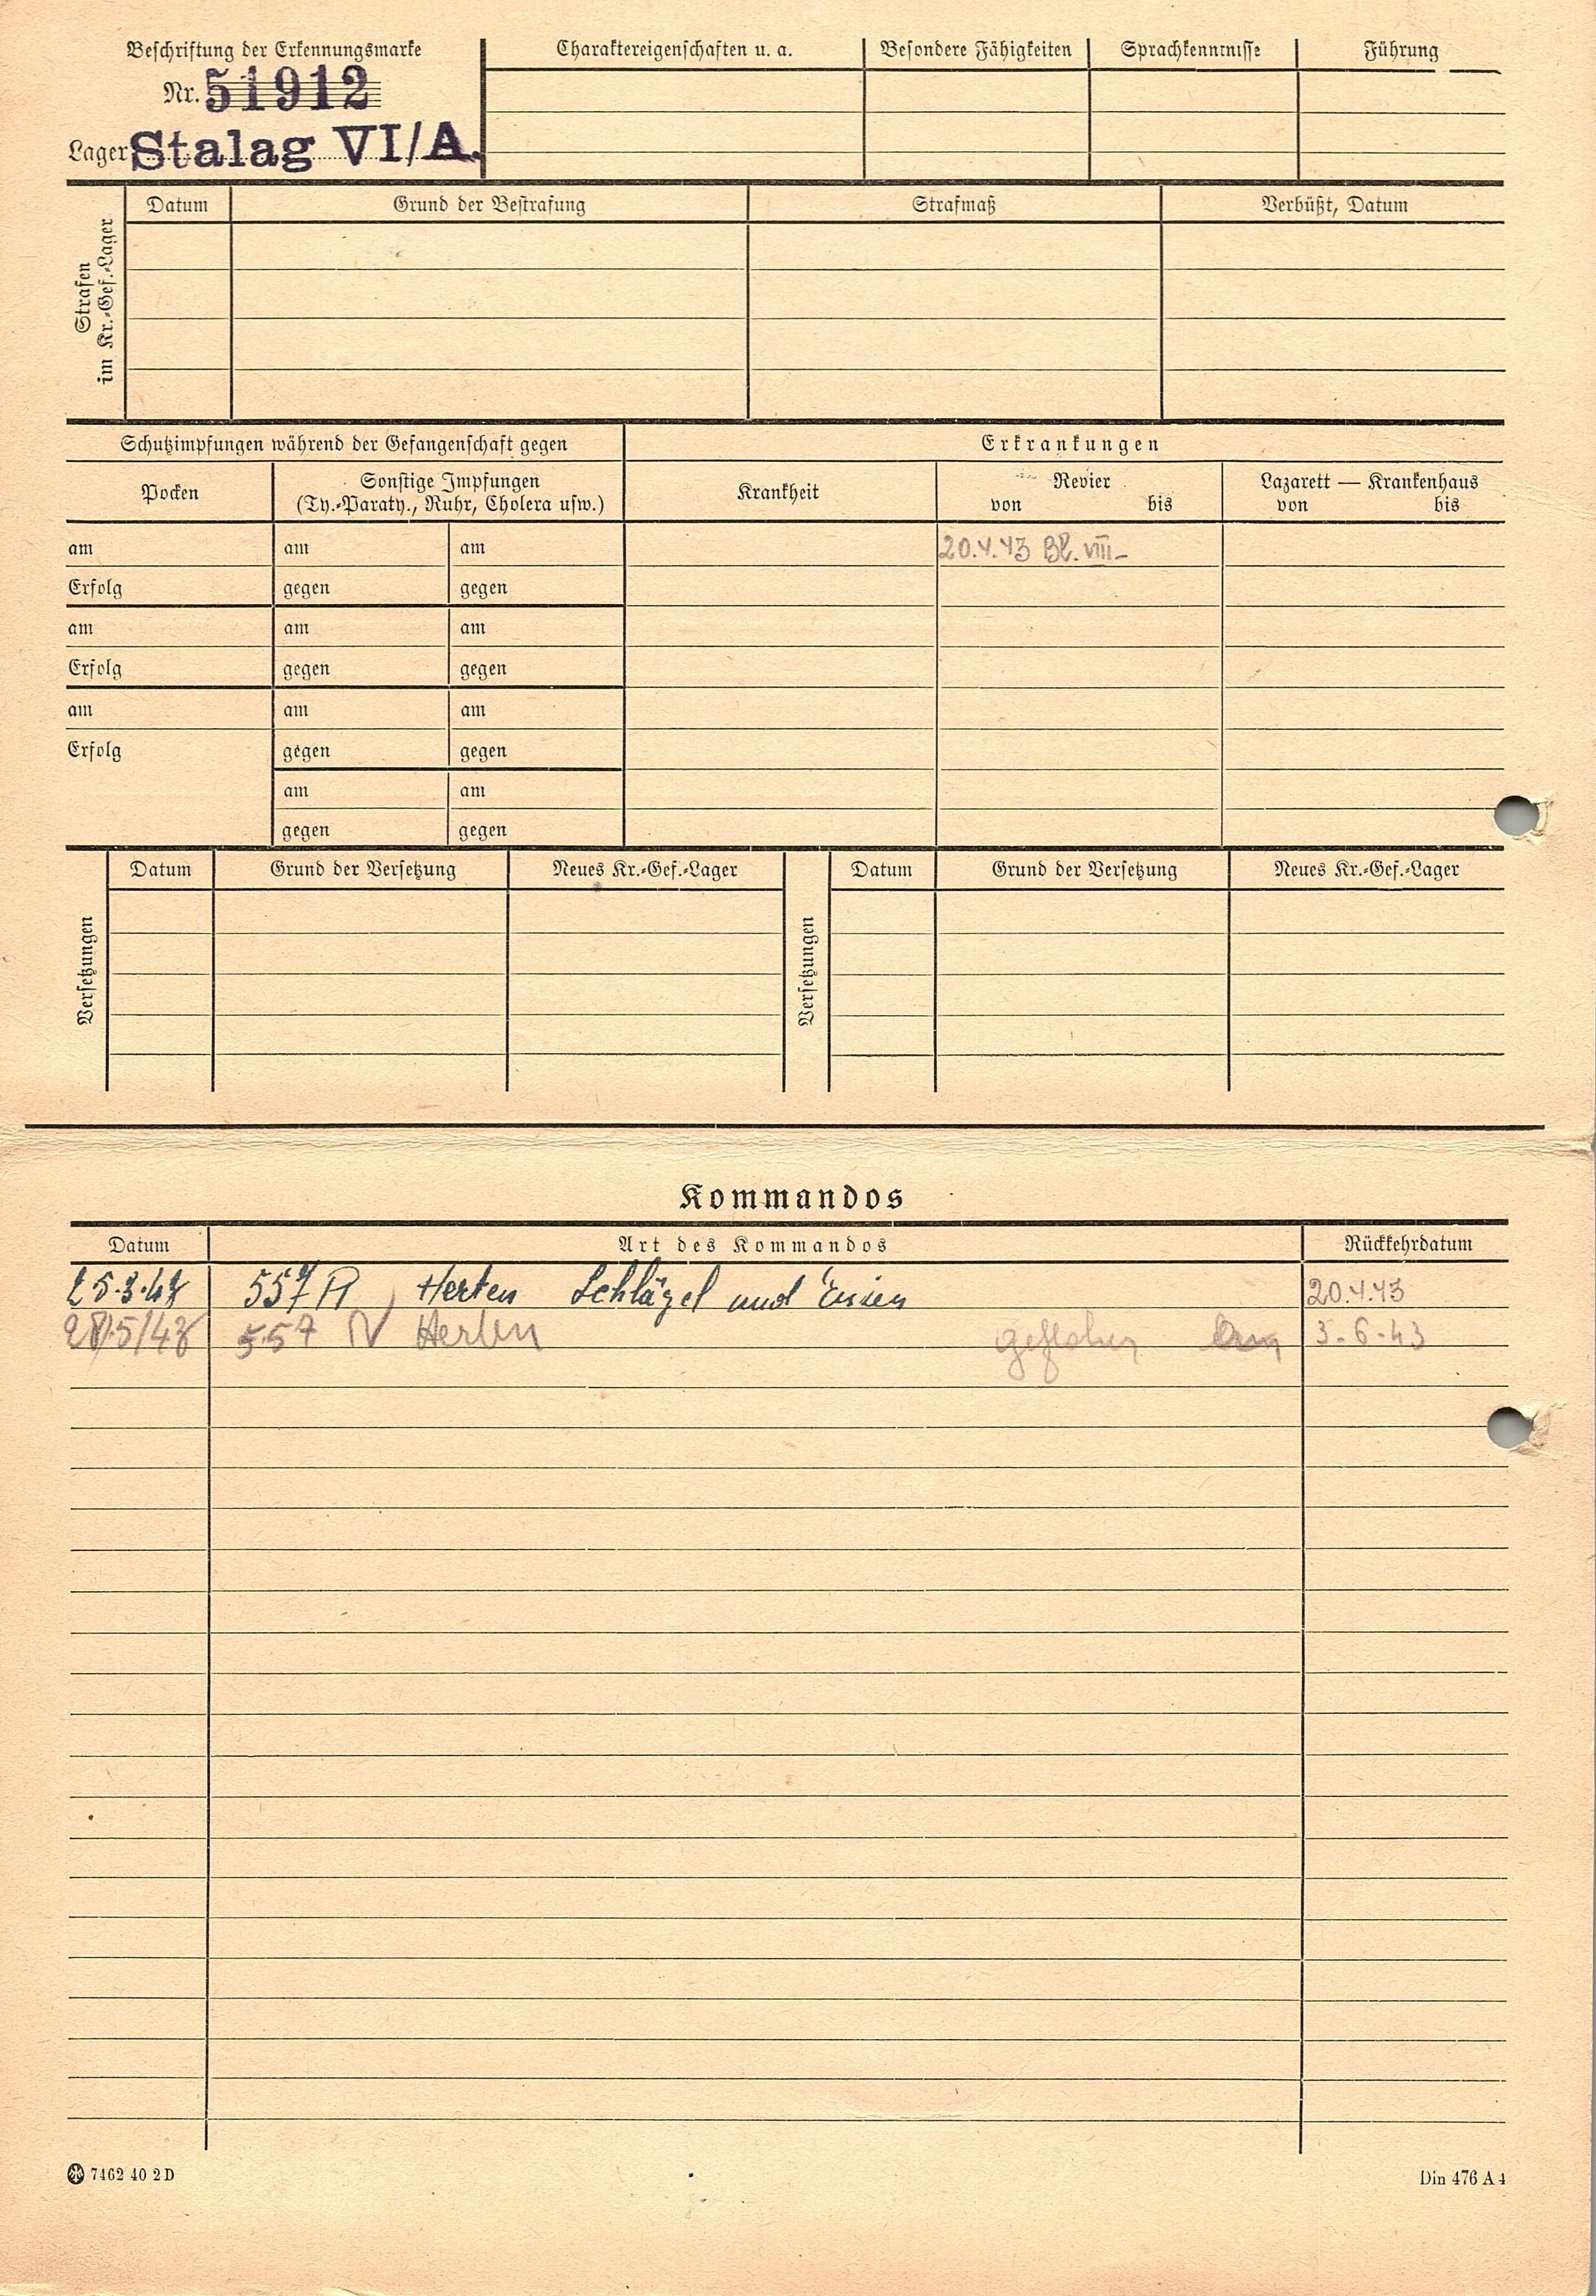 Beschriftung der Erkennungsmarke
Nr. 51912
Lager Stalag VI/A.
Charaktereigenschaften u. a.
Besondere Fähigkeiten
Sprachkenntnisse
Führung
Strafen
im Kr.-Gef.-Lager
Datum
Grund der Bestrafung
Strafmaß
Verbüßt, Datum
Schutzimpfungen während der Gefangenschaft gegen
Erkrankungen
Pocken
Sonstige Impfungen
(Ty.-Paraty., Ruhr, Cholera usw.)
Krankheit
Revier
von bis
Lazarett — Krankenhaus
von bis
am am am 20.4.43 Bl. VIII-
Erfolg gegen gegen
am am am
Erfolg gegen gegen
am am am
Erfolg gegen gegen
am am
gegen gegen
Versetzungen
Datum Grund der Versetzung Neues Kr.-Gef.-Lager
Versetzungen
Datum Grund der Versetzung Neues Kr.-Gef.-Lager
Kommandos
Datum Art des Kommandos Rückkehrdatum
557 R Herten Schlägel und Eisen 20.4.43
557 Herten geflohen 3-6-43
7462 40 2 D
Din 476 A 4